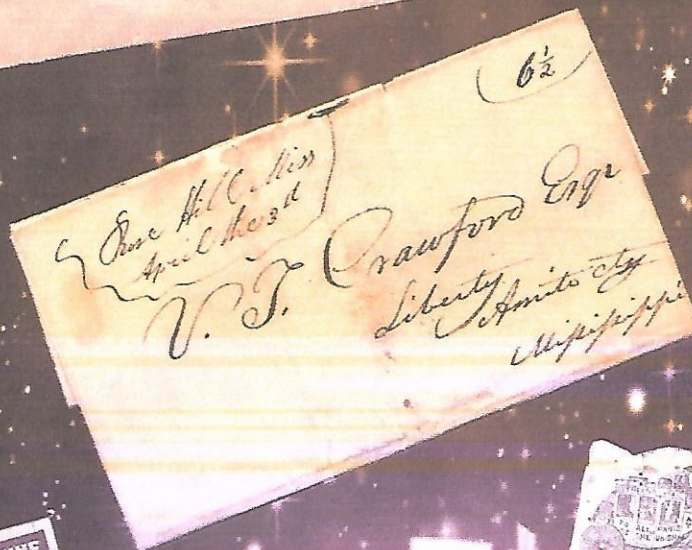 6½
Hill Miss
April the 3d
V. T. Crawford Esqr
Liberty
Amite cty
Mississippi